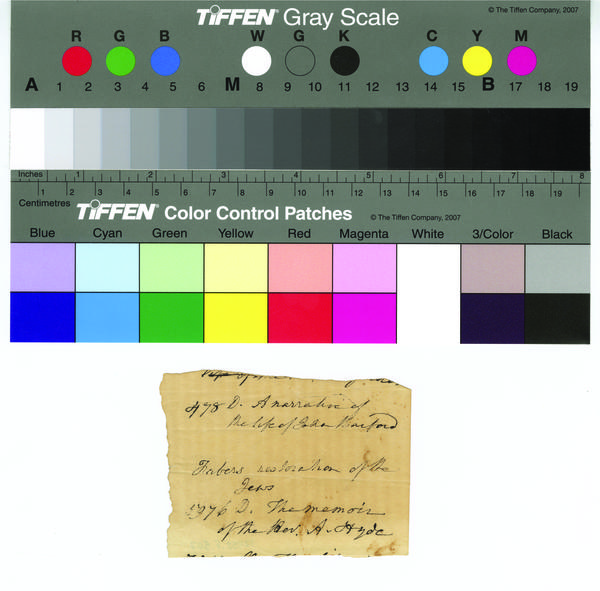 TIFFEN® Gray Scale
© The Tiffen Company, 2007
R G B W G K C Y M
A 1 2 3 4 5 6 M 8 9 10 11 12 13 14 15 B 17 18 19
Inches 1 2 3 4 5 6 7 8
Centimetres 1 2 3 4 5 6 7 8 9 10 11 12 13 14 15 16 17 18 19
TIFFEN® Color Control Patches
© The Tiffen Company, 2007
Blue Cyan Green Yellow Red Magenta White 3/Color Black
478 D. A narrative of
the life of John
Fabers restoration of the
Jews
D. The memoir
of the Rev. A. Hyde